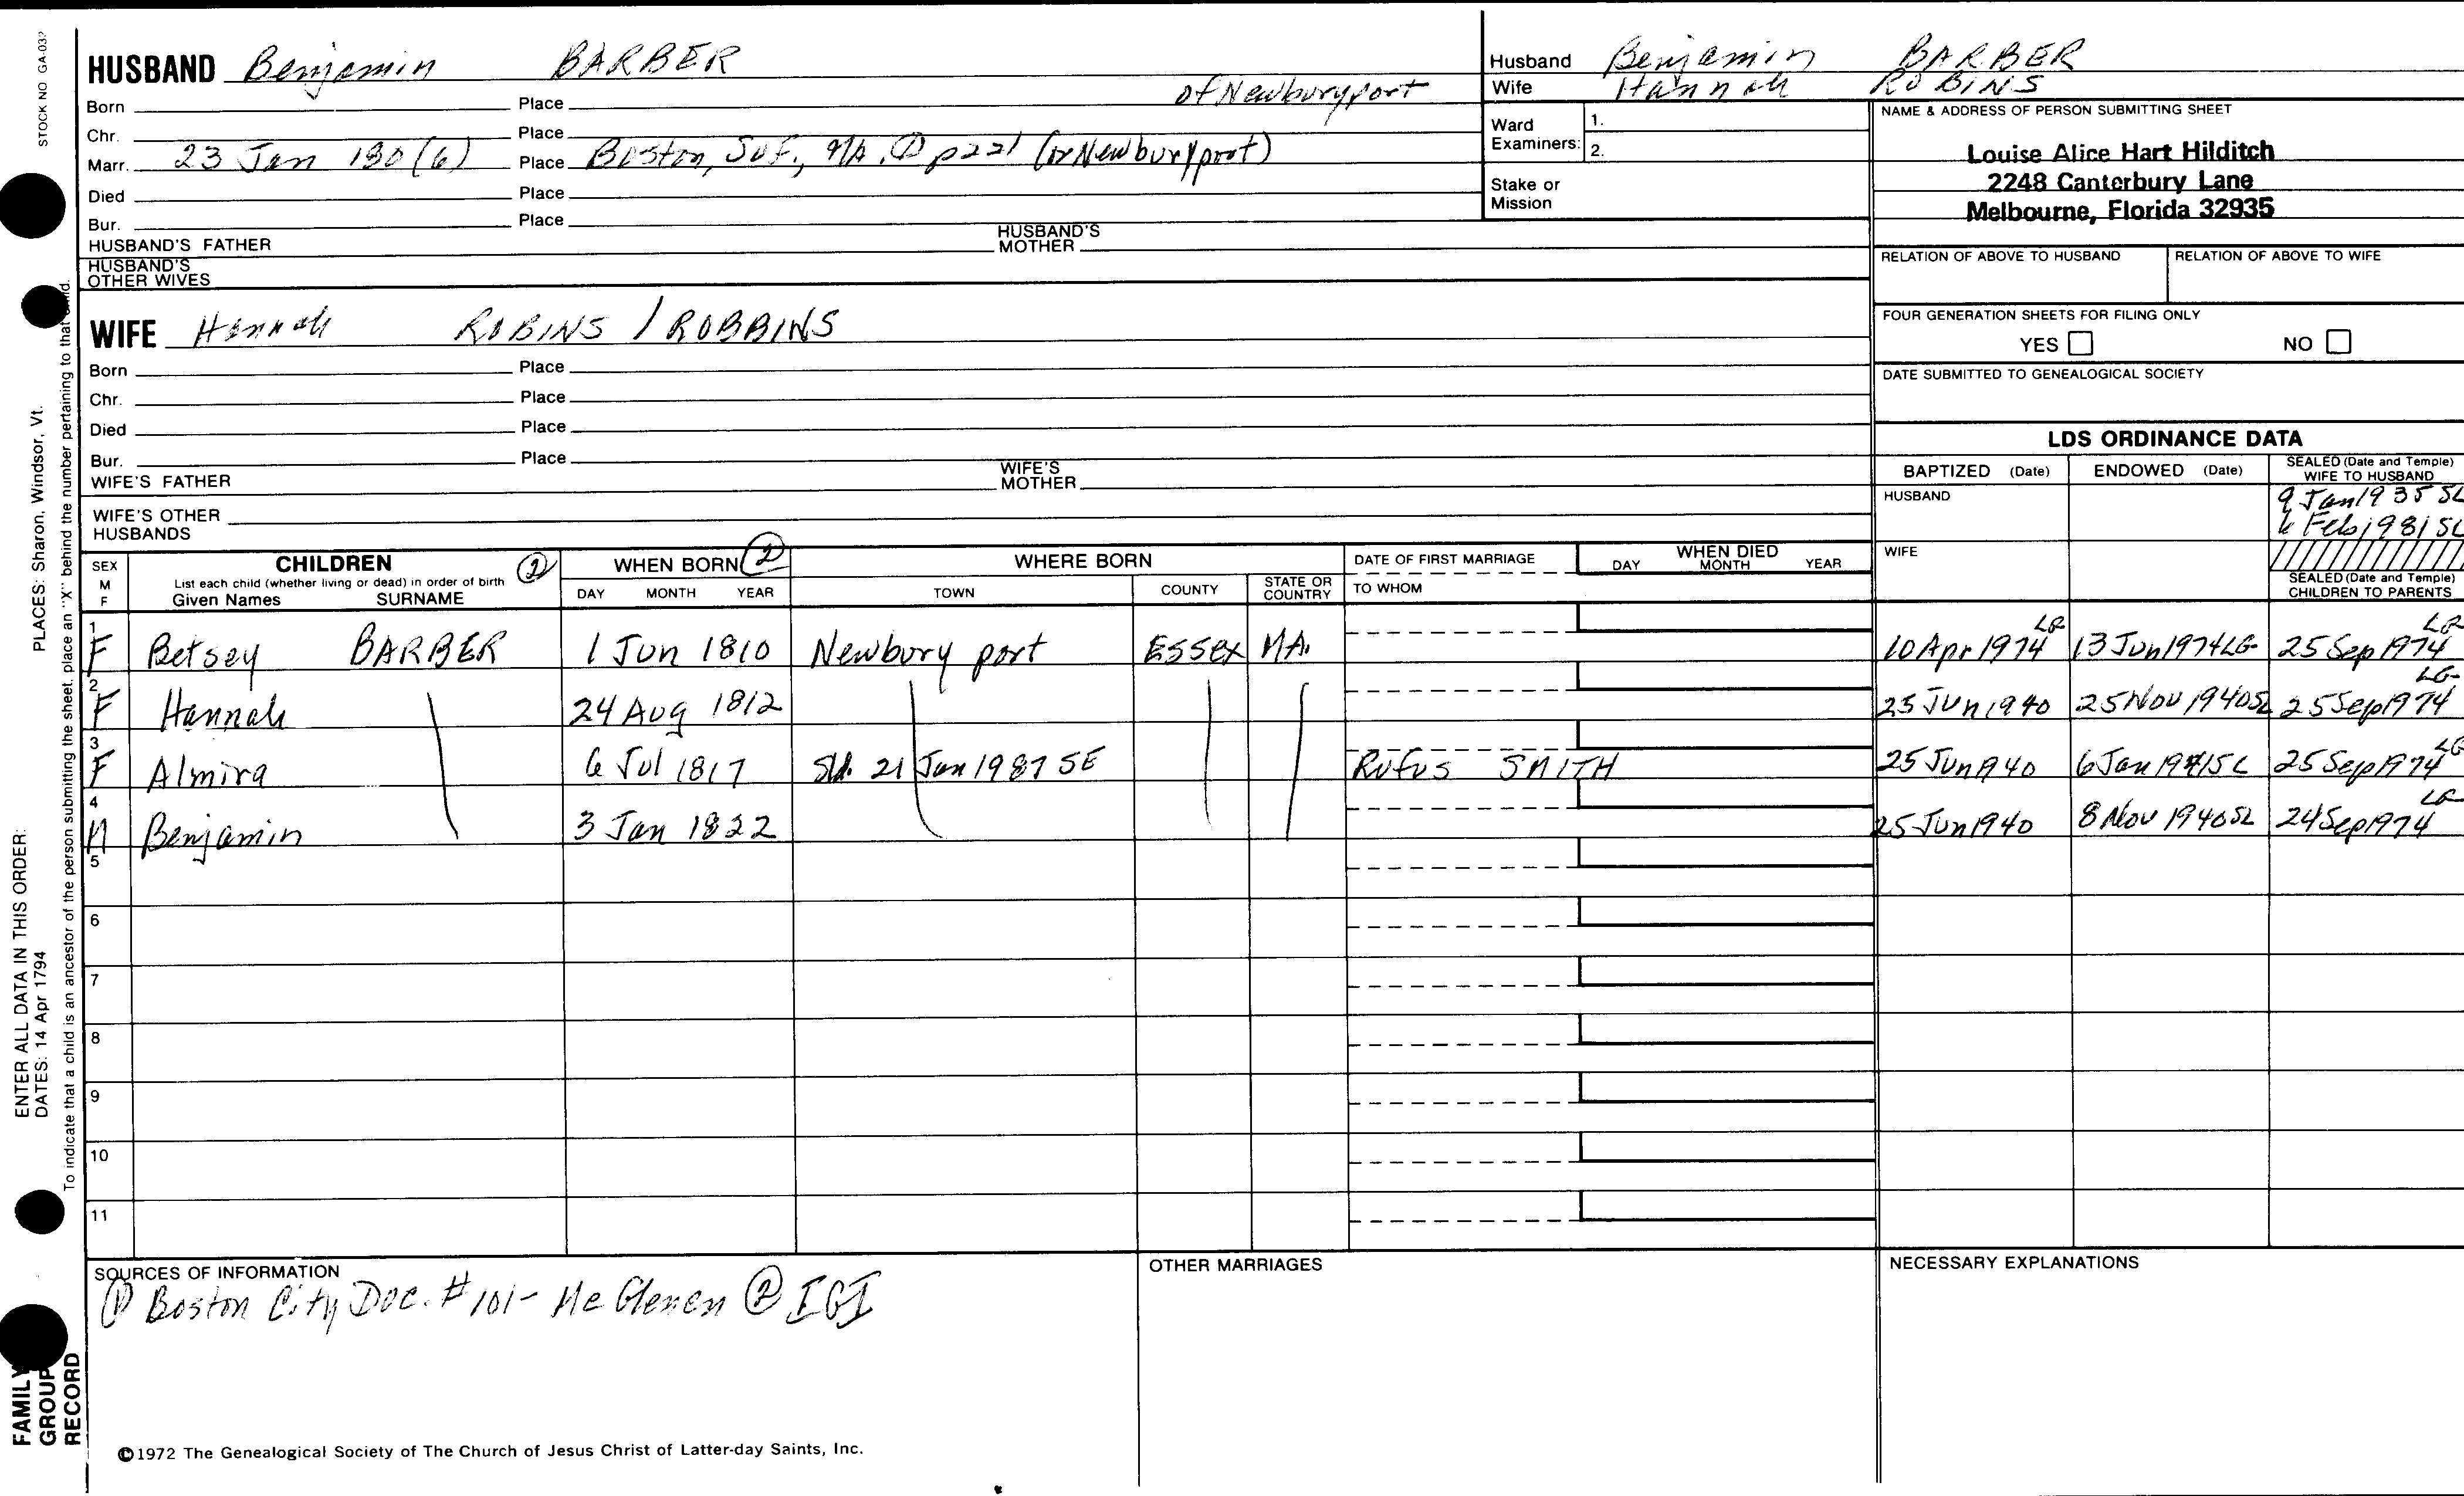 STOCK NO GA-032
HUSBAND Benjamin BARBER
of Newburyport
Born Place
Chr. Place
Marr. 23 Jan 180(6) Place Boston, Suf., MA. ① p221 (or Newburyport)
Died Place
Bur. Place
HUSBAND'S FATHER HUSBAND'S MOTHER
HUSBAND'S OTHER WIVES
Husband Benjamin BARBER
Wife Hannah ROBINS
Ward Examiners: 1.
2.
Stake or Mission
NAME & ADDRESS OF PERSON SUBMITTING SHEET
Louise Alice Hart Hilditch
2248 Canterbury Lane
Melbourne, Florida 32935
RELATION OF ABOVE TO HUSBAND RELATION OF ABOVE TO WIFE
FOUR GENERATION SHEETS FOR FILING ONLY
YES NO
DATE SUBMITTED TO GENEALOGICAL SOCIETY
WIFE Hannah ROBINS / ROBBINS
Born Place
Chr. Place
Died Place
Bur. Place
WIFE'S FATHER WIFE'S MOTHER
WIFE'S OTHER HUSBANDS
LDS ORDINANCE DATA
BAPTIZED (Date) ENDOWED (Date) SEALED (Date and Temple) WIFE TO HUSBAND
HUSBAND 9 Jan 1935 SL
6 Feb 1981 SL
WIFE
SEALED (Date and Temple) CHILDREN TO PARENTS
SEX M F CHILDREN ② WHEN BORN ② WHERE BORN DATE OF FIRST MARRIAGE WHEN DIED
List each child (whether living or dead) in order of birth
Given Names SURNAME DAY MONTH YEAR TOWN COUNTY STATE OR COUNTRY TO WHOM DAY MONTH YEAR
1 F Betsey BARBER 1 Jun 1810 Newbury port Essex MA. 10 Apr 1974 LG 13 Jun 1974 LG 25 Sep 1974 LG
2 F Hannah 24 Aug 1812 25 Jun 1940 25 Nov 1940 SL 25 Sep 1974 LG
3 F Almira 6 Jul 1817 Sld. 21 Jan 1987 SE Rufus SMITH 25 Jun 1940 6 Jan 1941 SL 25 Sep 1974 LG
4 M Benjamin 3 Jan 1822 25 Jun 1940 8 Nov 1940 SL 24 Sep 1974 LG
5
6
7
8
9
10
11
SOURCES OF INFORMATION
① Boston City Doc. # 101 - McGlenen ② IGI
OTHER MARRIAGES
NECESSARY EXPLANATIONS
©1972 The Genealogical Society of The Church of Jesus Christ of Latter-day Saints, Inc.
FAMILY GROUP RECORD
ENTER ALL DATA IN THIS ORDER:
DATES: 14 Apr 1794
PLACES: Sharon, Windsor, Vt.
To indicate that a child is an ancestor of the person submitting the sheet, place an "X" behind the number pertaining to that child.